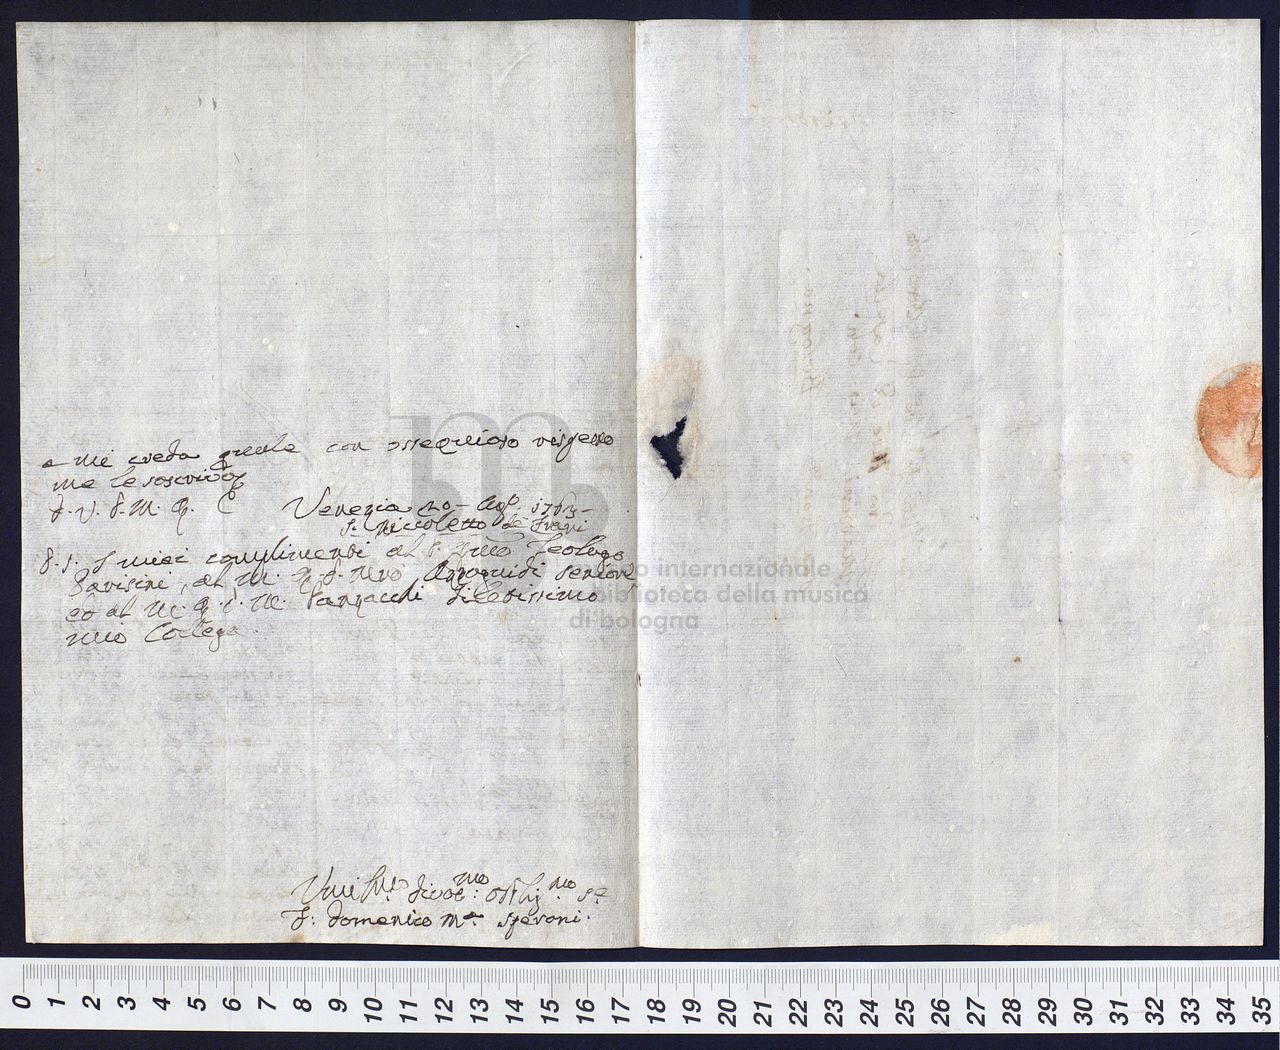 e mi creda quale con ossequioso rispetto
me le soscrivo
D. V. P. M. R. Venezia 20 Agō. 1763
S. Niccoletto de Frari
P. S. I miei complimenti al P. Teologo
al M. R. P. Mrō seniore
ed al M. R. P. M. dilettissimo
mio Collega
Umilmo. divotmo: obligmo. Se.
F: Domenico Ma. Speroni.
museo internazionale
e biblioteca della musica
di bologna
0 1 2 3 4 5 6 7 8 9 10 11 12 13 14 15 16 17 18 19 20 21 22 23 24 25 26 27 28 29 30 31 32 33 34 35